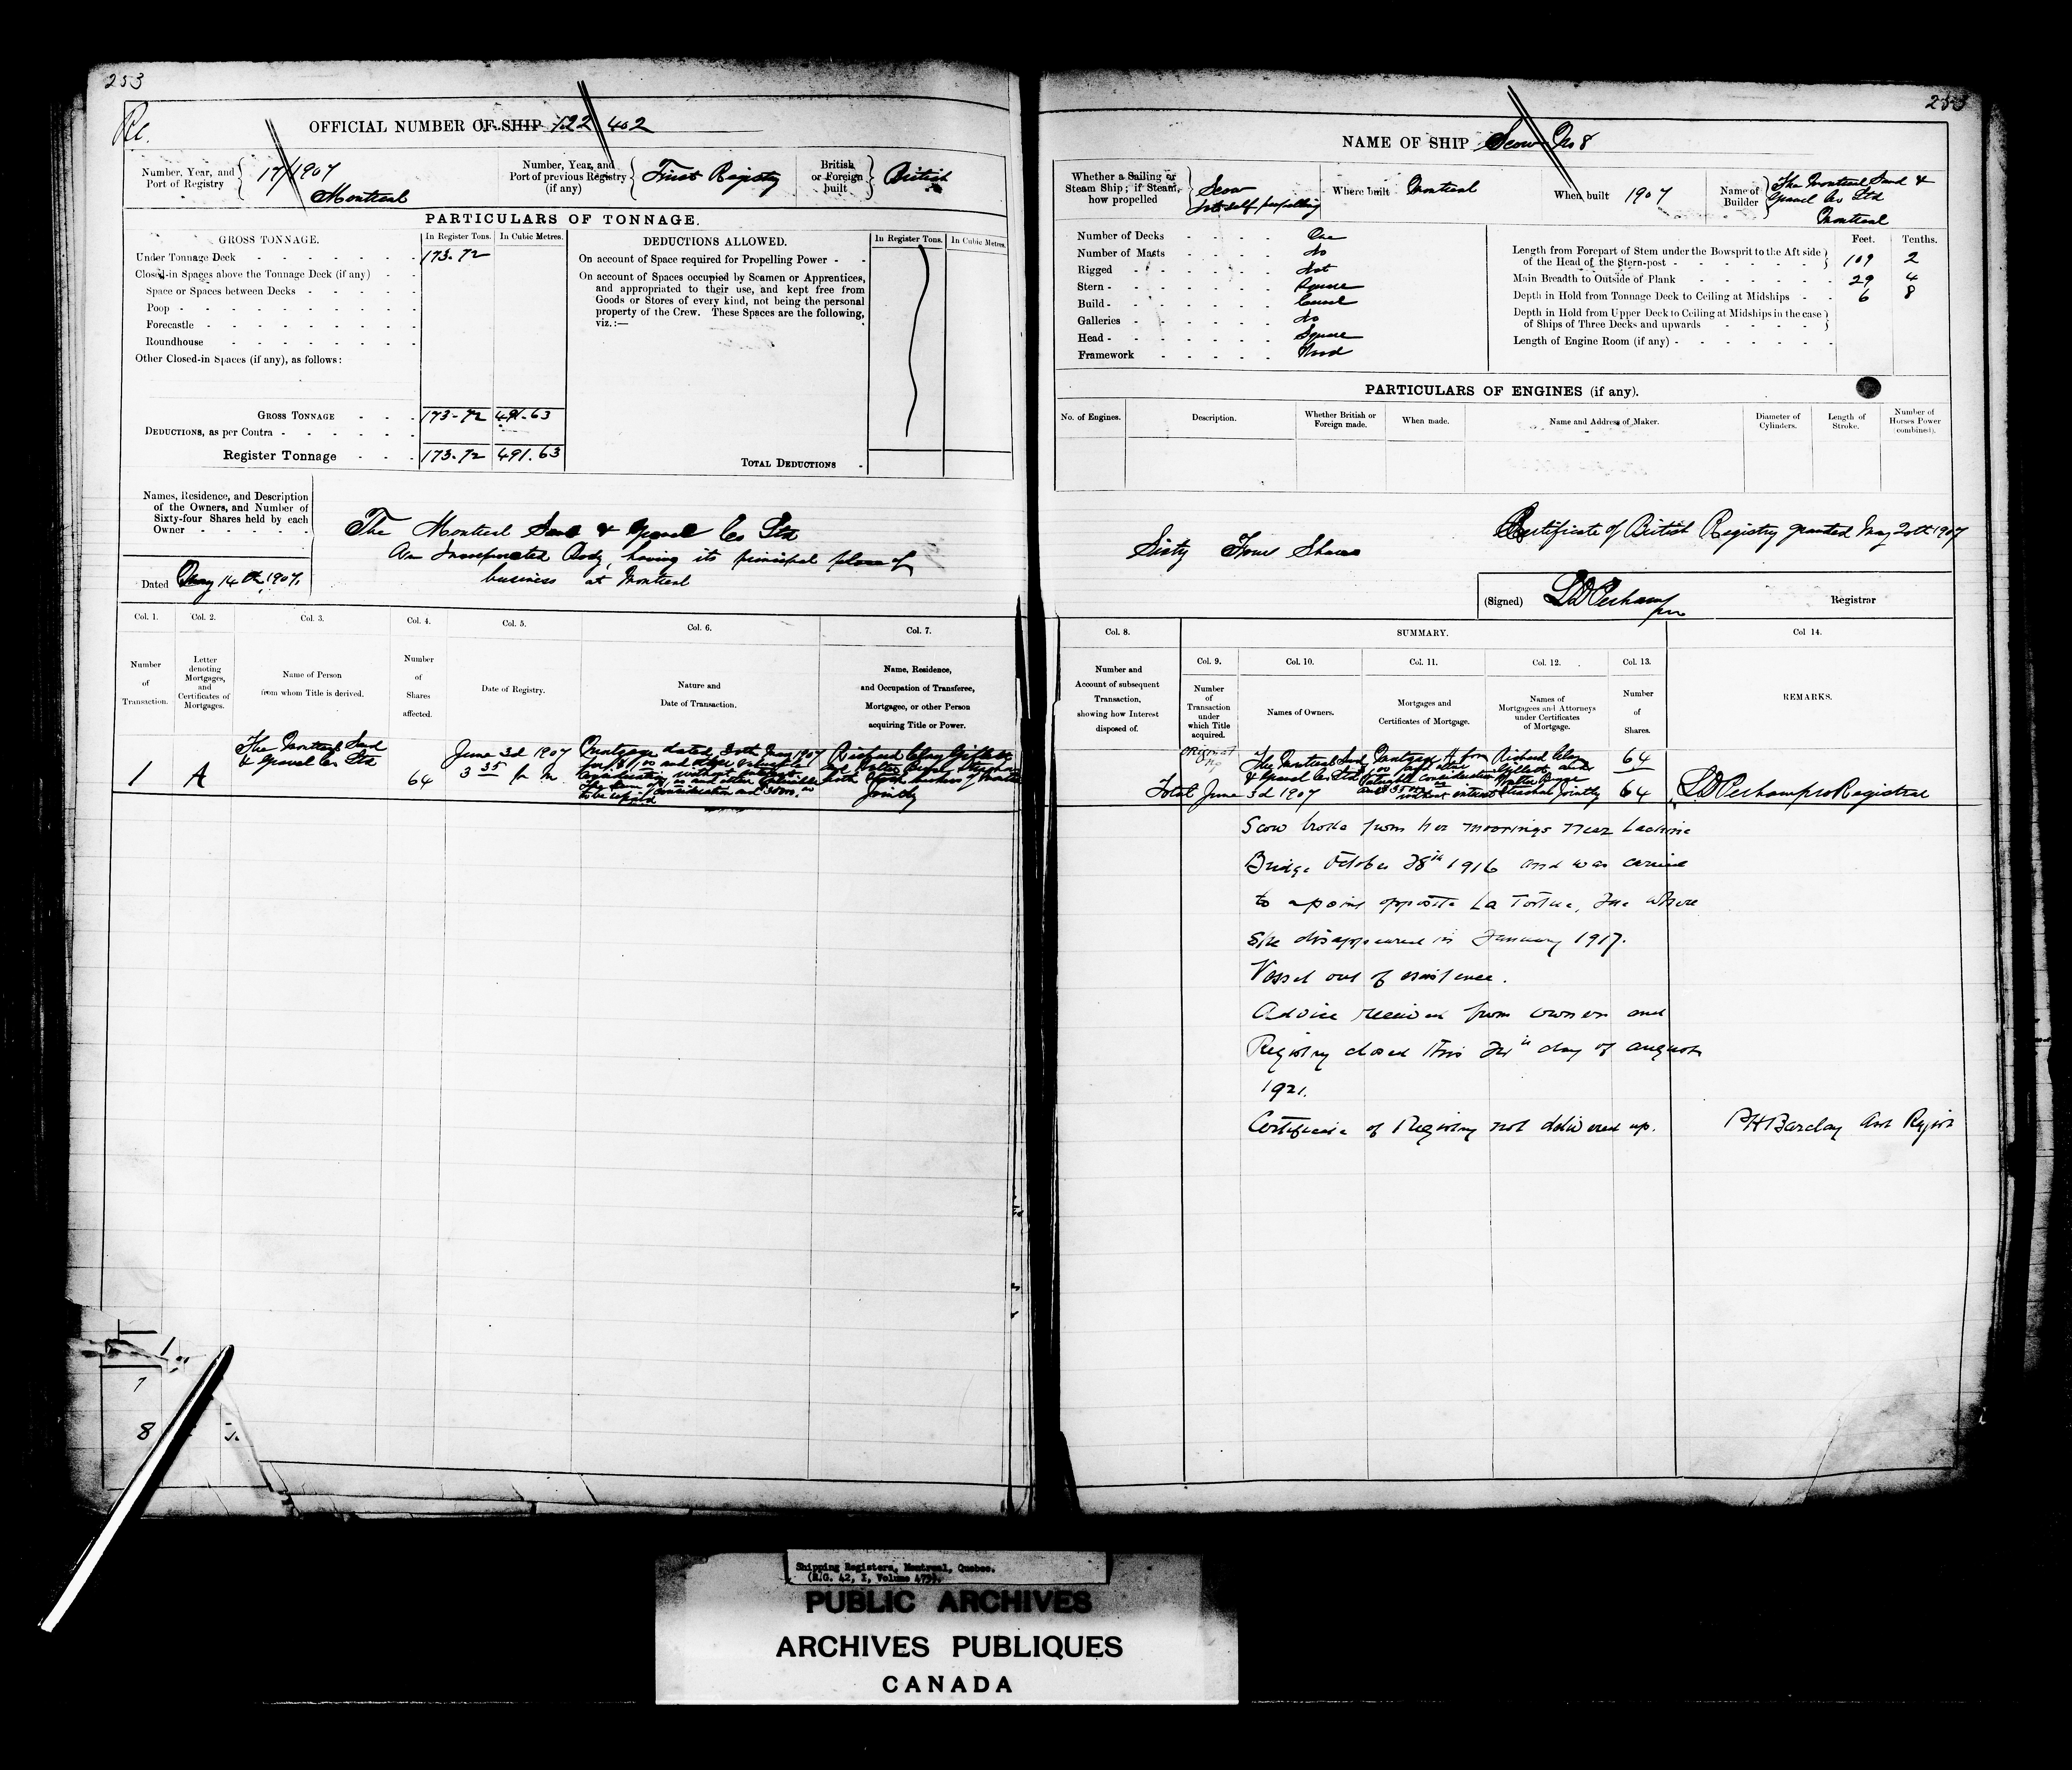 253
Re.
OFFICIAL NUMBER OF SHIP 122 402
Number, Year, and
Port of Registry
17/1907
Montreal
Number, Year, and
Port of previous Registry
(if any)
First Registry
British
or Foreign
built
British
PARTICULARS OF TONNAGE.
GROSS TONNAGE.
In Register Tons.
In Cubic Metres.
Under Tonnage Deck
173.72
Closed-in Spaces above the Tonnage Deck (if any)
Space or Spaces between Decks
Poop
Forecastle
Roundhouse
Other Closed-in Spaces (if any), as follows:
GROSS TONNAGE
173-72
491.63
DEDUCTIONS, as per Contra
Register Tonnage
173.72
491.63
DEDUCTIONS ALLOWED.
In Register Tons.
In Cubic Metres.
On account of Space required for Propelling Power
On account of Spaces occupied by Seamen or Apprentices,
and appropriated to their use, and kept free from
Goods or Stores of every kind, not being the personal
property of the Crew. These Spaces are the following,
viz.:—
TOTAL DEDUCTIONS
Names, Residence, and Description
of the Owners, and Number of
Sixty-four Shares held by each
Owner
Dated May 14th 1907.
The Montreal Sand & Gravel Co Ltd
An Incorporated Body, having its principal place of
business at Montreal
Col. 1.
Number
of
Transaction.
Col. 2.
Letter
denoting
Mortgages,
and
Certificates of
Mortgages.
Col. 3.
Name of Person
from whom Title is derived.
Col. 4.
Number
of
Shares
affected.
Col. 5.
Date of Registry.
Col. 6.
Nature and
Date of Transaction.
Col. 7.
Name, Residence,
and Occupation of Transferee,
Mortgagee, or other Person
acquiring Title or Power.
1
A
The Montreal Sand
& Gravel Co Ltd
64
June 3d 1907
3 35 p m
Mortgage dated 30th May 1907
for $1.00 and other valuable
consideration without interest
The sum of $1.00 and other valuable
consideration and
to be repaid
Richard Clay
and Walter
both of Montreal
Jointly
1
7
8
253
NAME OF SHIP Scow No 8
Whether a Sailing or
Steam Ship; if Steam,
how propelled
Scow
Not self propelling
Where built Montreal
When built 1907
Name of
Builder
The Montreal Sand &
Gravel Co Ltd
Montreal
Number of Decks One
Number of Masts No
Rigged Not
Stern Square
Build Carvel
Galleries No
Head Square
Framework Wood
Feet.
Tenths.
Length from Forepart of Stem under the Bowsprit to the Aft side
of the Head of the Stern-post
109 2
Main Breadth to Outside of Plank
29 4
Depth in Hold from Tonnage Deck to Ceiling at Midships
6 8
Depth in Hold from Upper Deck to Ceiling at Midships in the case
of Ships of Three Decks and upwards
Length of Engine Room (if any)
PARTICULARS OF ENGINES (if any).
No. of Engines.
Description.
Whether British or
Foreign made.
When made.
Name and Address of Maker.
Diameter of
Cylinders.
Length of
Stroke.
Number of
Horses Power
(combined).
Sixty Four Shares
Certificate of British Registry granted May 20th 1907
(Signed) Registrar
Col. 8.
Number and
Account of subsequent
Transaction,
showing how Interest
disposed of.
SUMMARY.
Col. 9.
Number
of
Transaction
under
which Title
acquired.
Col. 10.
Names of Owners.
Col. 11.
Mortgages and
Certificates of Mortgage.
Col. 12.
Names of
Mortgagees and Attorneys
under Certificates
of Mortgage.
Col. 13.
Number
of
Shares.
Col 14.
REMARKS.
Original
The Montreal Sand
& Gravel Co Ltd
Mortgage A for
valuable consideration
without interest
Richard Clay
Walter
Jointly
64
Total June 3d 1907
64
Registrar
Scow broke from her moorings near Lachine
Bridge October 28th 1916 and was carried
to a point opposite La Tortue, Que where
she disappeared in January 1917.
Vessel out of existence.
Advice received from owners and
Registry closed this day of August
1921.
Certificate of Registry not delivered up.
Barclay
Shipping Registers, Montreal, Quebec.
PUBLIC ARCHIVES
ARCHIVES PUBLIQUES
CANADA